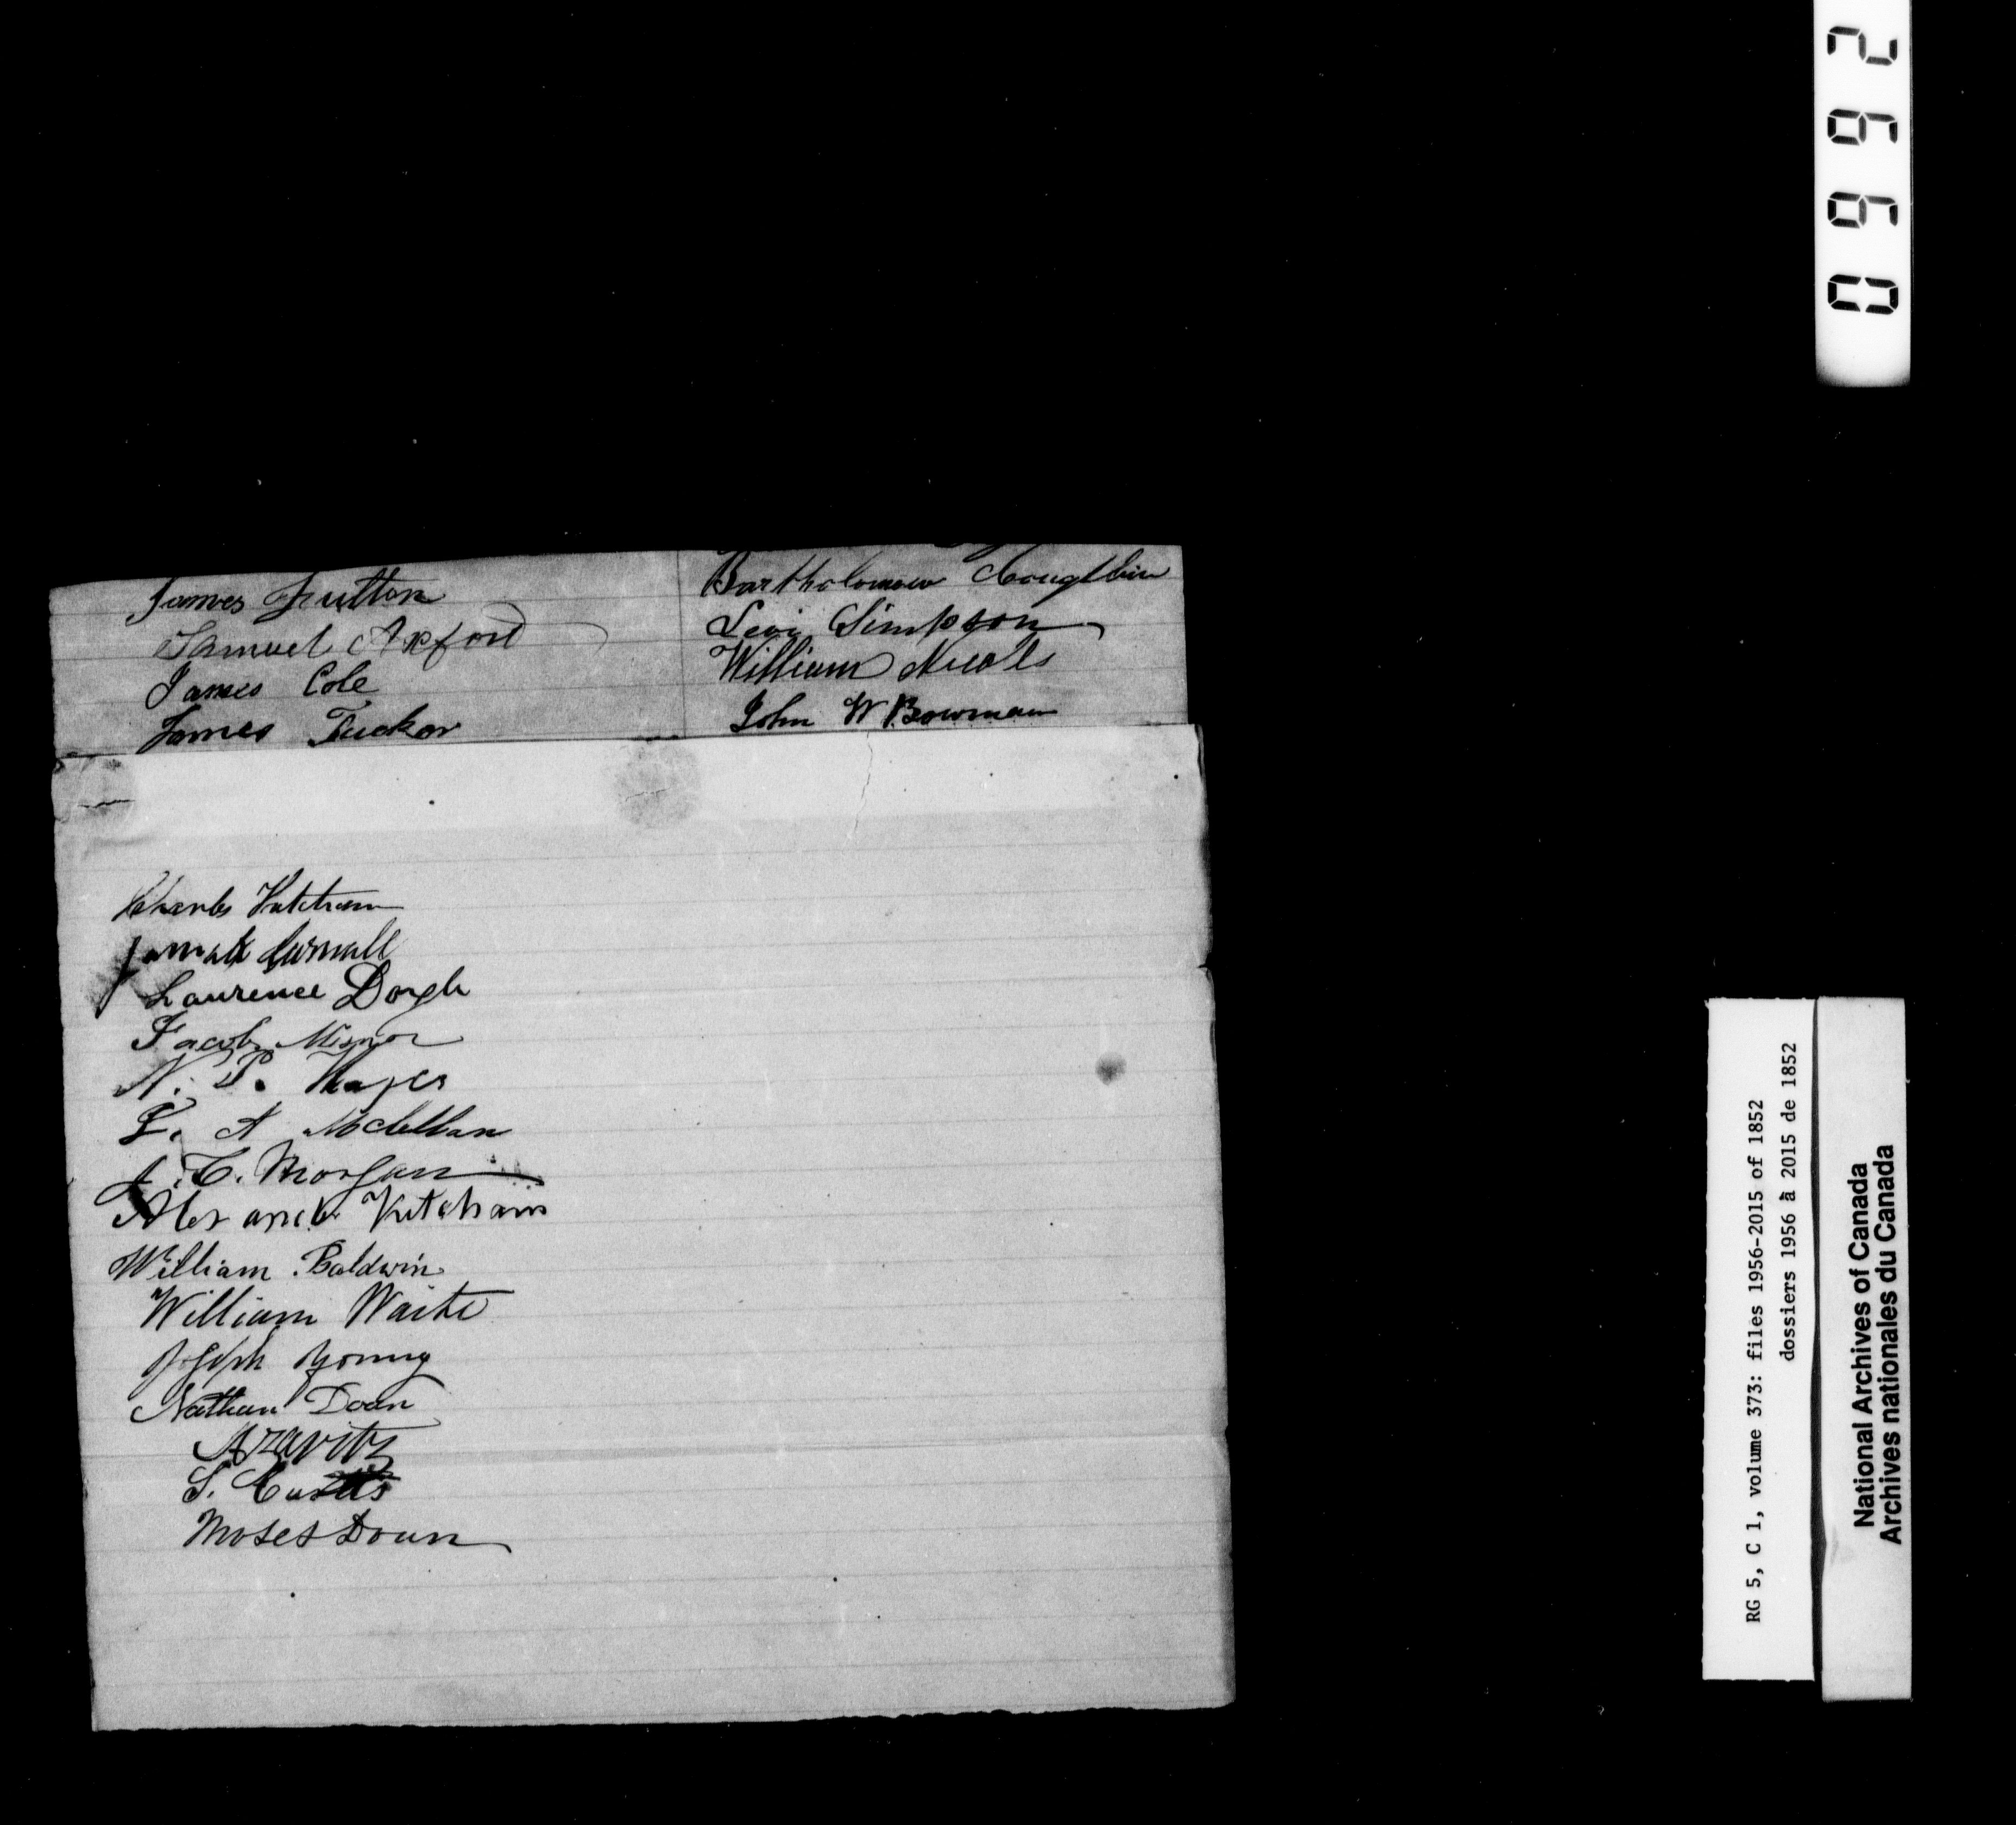 James Fulton
Samuel Axford
James Cole
James Tucker
Bartholomew Coughlin
Levi Simpson
William Nicols
John W Bowman
Charles Ketcham
Laurence Doyle
Jacob Misner
N. P.
L. A McClellan
J. C. Morgan
Ketcham
William Baldwin
William Waite
Joseph Young
Nathan Doan
A Zavitz
S. Curtis
Moses Doan
0992
RG 5, C 1, volume 373: files 1956-2015 of 1852
dossiers 1956 à 2015 de 1852
National Archives of Canada
Archives nationales du Canada